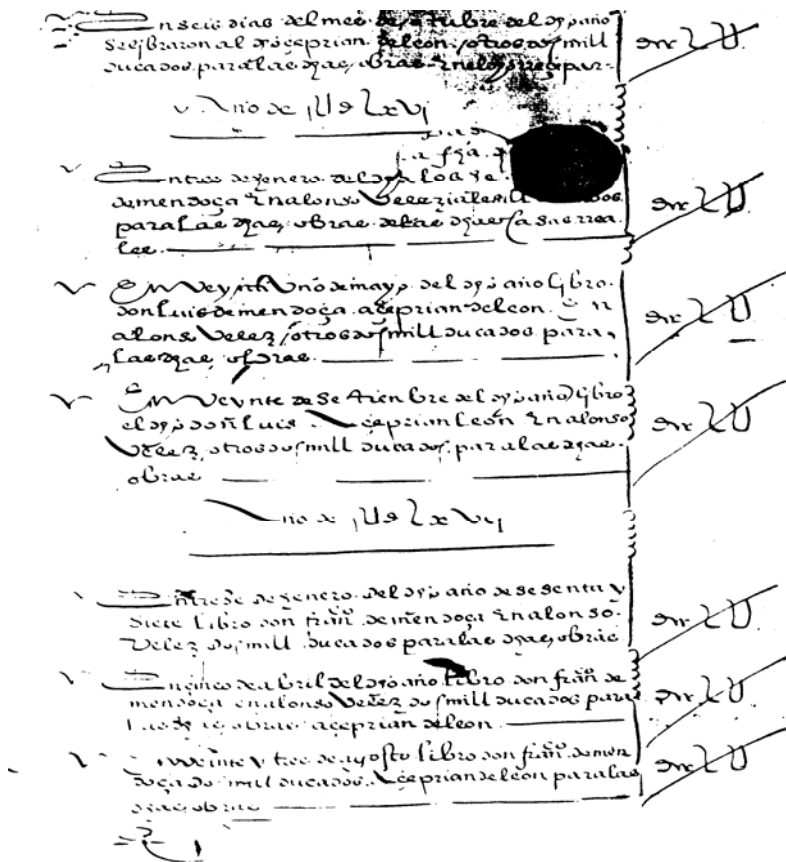 En seis dias del mes de otubre del dho año
se libraron al dho çeprian de leon otros dos mill
ducados para las dhas obras en el dho
Año de jUdlxvj
En tres de henero del dho
de mendoça en alonso Velez dos mill ducados
para las dhas obras de las dhas casas rea
les
En Veynte y Uno de mayo del dho año libro
don luis de mendoça a çeprian de leon en
alonso Velez otros dos mill ducados para
las dhas obras
En Veynte de setienbre del dho año libro
el dho don luis a çeprian leon en alonso
Velez otros dos mill ducados para las dhas
obras
Año de jUdlxvij
En trese de henero del dho año de sesenta y
siete libro don franco de mendoça en alonso
Velez dos mill ducados para las dhas obras
En çinco de abril del dho año libro don franco de
mendoça en alonso Velez dos mill ducados para
las dhas obras a çeprian de leon
En veinte y tres de agosto libro don franco de men
doça dos mill ducados a çeprian de leon para las
dhas obras